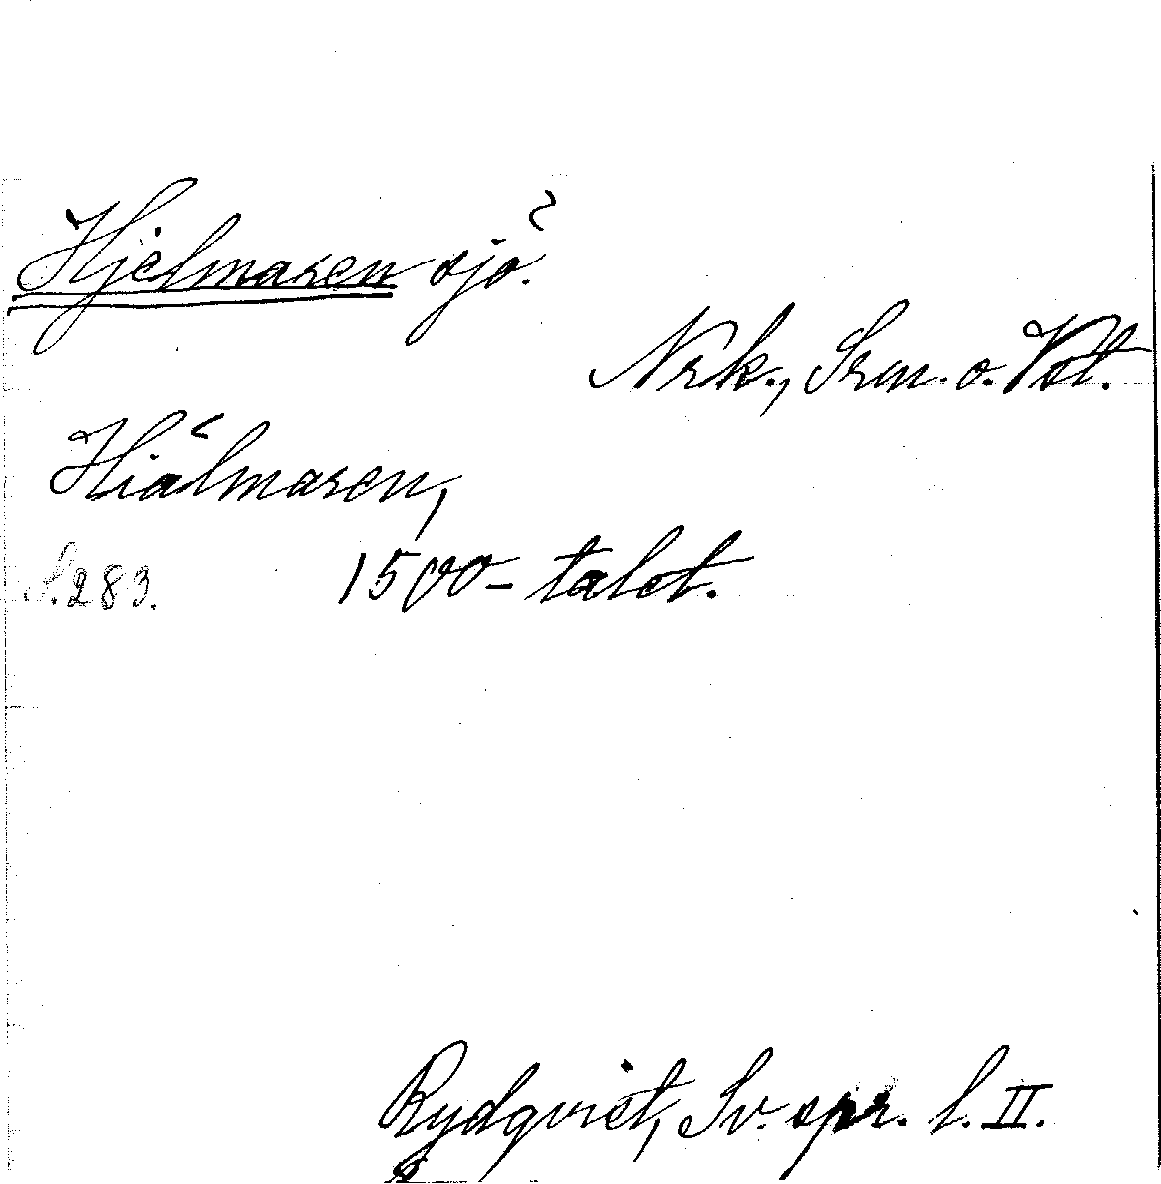 Hjelmaren sjö.
Nrk., Srm. o. Vstl.
Hiälmaren,
S. 283. 1500-talet.
Rydqvist, Sv. spr. l. II.